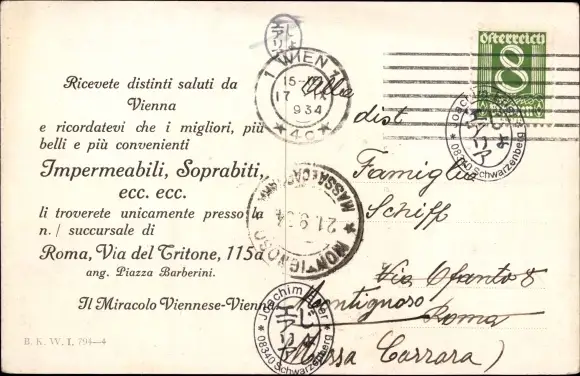 Ricevete distinti saluti da
Vienna
e ricordatevi che i migliori, più
belli e più convenienti
Impermeabili, Soprabiti,
ecc. ecc.
li troverete unicamente presso la
n./ succursale di
Roma, Via del Tritone, 115a
ang. Piazza Barberini.
Il Miracolo Viennese-Vienna
B. K. W. I. 794—4
1 WIEN 1
15-
17 IX
9 34
* 4c *
Österreich
8
Joachim
* 08340 Schwarzenberg *
Alla
dist
Famiglia
Schiff
Via Ofanto 8
Montignoso
Roma
(Massa Carrara)
MONTIGNOSO
MASSA E CARRARA
21.9.34
Joachim
* 08340 Schwarzenberg *